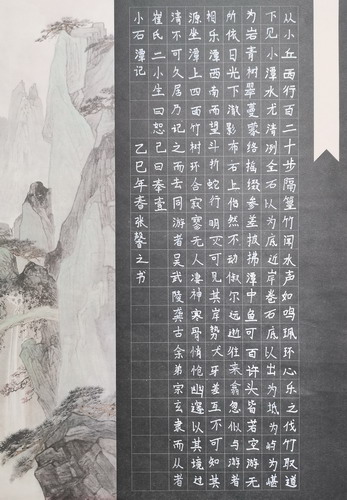 从小丘西行百二十步隔篁竹闻水声如鸣珮环心乐之伐竹取道
下见小潭水尤清冽全石以为底近岸卷石底以出为坻为屿为嵁
为岩青树翠蔓蒙络摇缀参差披拂潭中鱼可百许头皆若空游无
所依日光下澈影布石上佁然不动俶尔远逝往来翕忽似与游者
相乐潭西南而望斗折蛇行明灭可见其岸势犬牙差互不可知其
源坐潭上四面竹树环合寂寥无人凄神寒骨悄怆幽邃以其境过
清不可久居乃记之而去同游者吴武陵龚古余弟宗玄隶而从者
崔氏二小生曰恕己曰奉壹
小石潭记 乙巳年春张馨之书